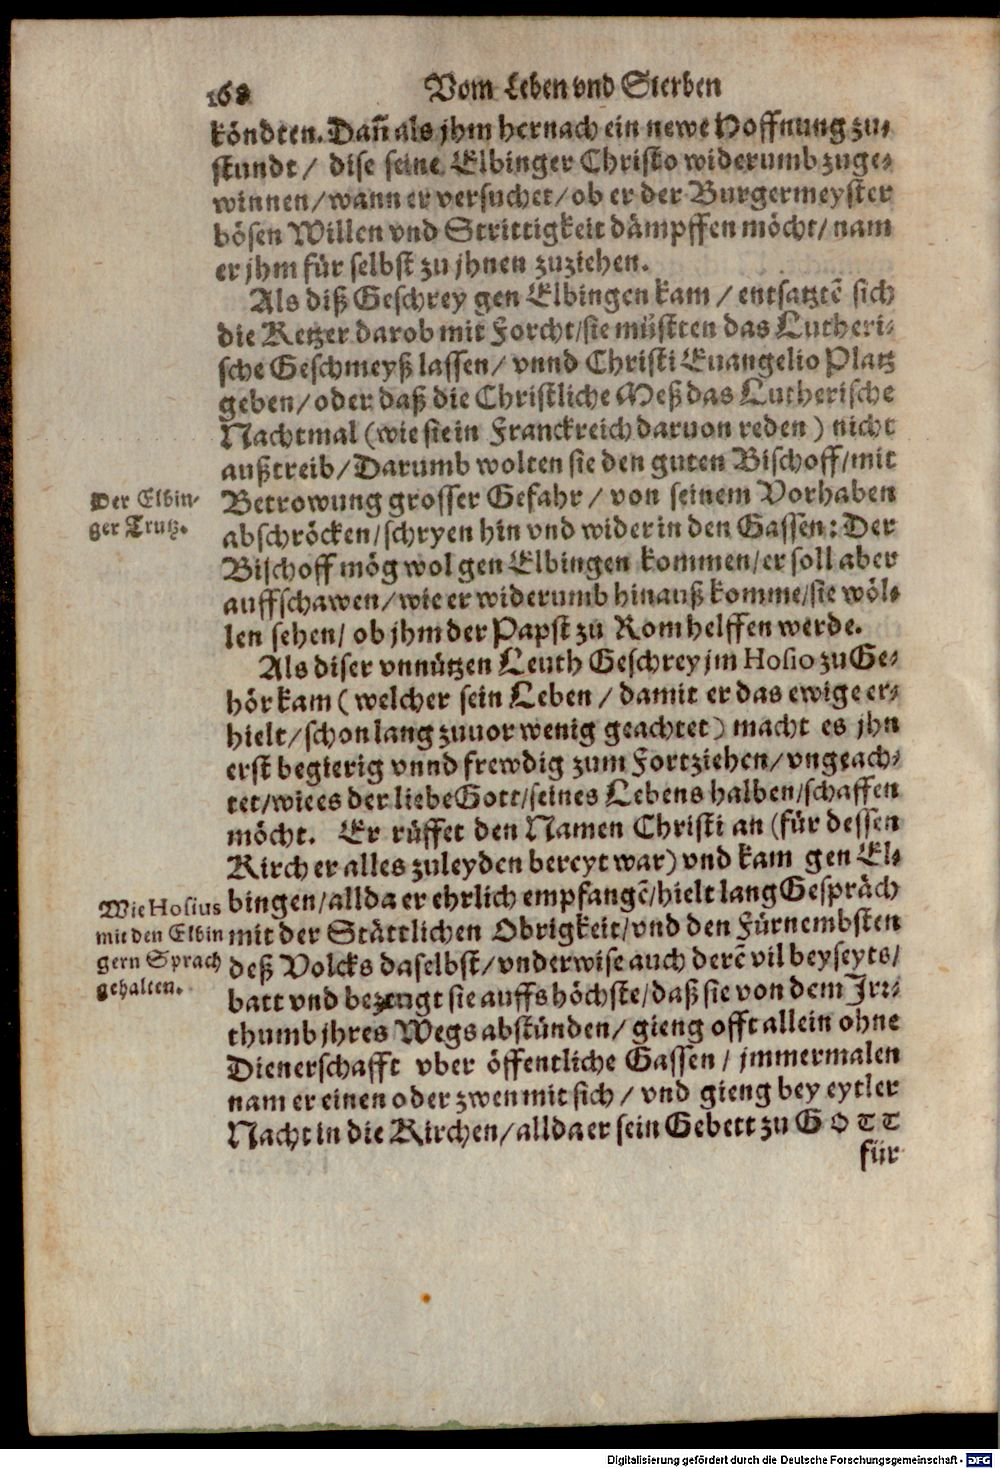 168 Vom Leben vnd Sterben
köndten. Dañ als jhm hernach ein newe Hoffnung zu-
stundt / dise seine Elbinger Christo widerumb zuge-
winnen / wann er versuchet / ob er der Burgermeyster
bösen Willen vnd Strittigkeit dämpffen möcht / nam
er jhm für selbst zu jhnen zuziehen.
Als diß Geschrey gen Elbingen kam / entsatztẽ sich
die Ketzer darob mit Forcht / sie müstten das Lutheri-
sche Geschmeyß lassen / vnnd Christi Euangelio Platz
geben / oder daß die Christliche Meß das Lutherische
Nachtmal (wie sie in Franckreich daruon reden) nicht
außtreib / Darumb wolten sie den guten Bischoff / mit
Der Elbin-
ger Trutz.
Betrowung grosser Gefahr / von seinem Vorhaben
abschröcken / schryen hin vnd wider in den Gassen: Der
Bischoff mög wol gen Elbingen kommen / er soll aber
auffschawen / wie er widerumb hinauß komme / sie wöl-
len sehen / ob jhm der Papst zu Rom helffen werde.
Als diser vnnützen Leuth Geschrey jm Hosio zu Ge-
hör kam (welcher sein Leben / damit er das ewige er-
hielt / schon lang zuuor wenig geachtet) macht es jhn
erst begierig vnnd frewdig zum Fortziehen / vngeach-
tet / wie es der liebe Gott / seines Lebens halben / schaffen
möcht. Er rüffet den Namen Christi an (für dessen
Kirch er alles zuleyden bereyt war) vnd kam gen El-
Wie Hosius
mit den Elbin
gern Sprach
gehalten.
bingen / allda er ehrlich empfangẽ / hielt lang Gespräch
mit der Stättlichen Obrigkeit / vnd den Fürnembsten
deß Volcks daselbst / vnderwise auch derẽ vil beyseyts /
batt vnd bezeugt sie auffs höchste / daß sie von dem Irr-
thumb jhres Wegs abstünden / gieng offt allein ohne
Dienerschafft vber öffentliche Gassen / jmmermalen
nam er einen oder zwen mit sich / vnd gieng bey eytler
Nacht in die Kirchen / allda er sein Gebett zu GOTT
für
Digitalisierung gefördert durch die Deutsche Forschungsgemeinschaft - DFG